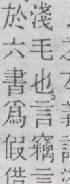 淺毛也。言竊言
於六書爲假借